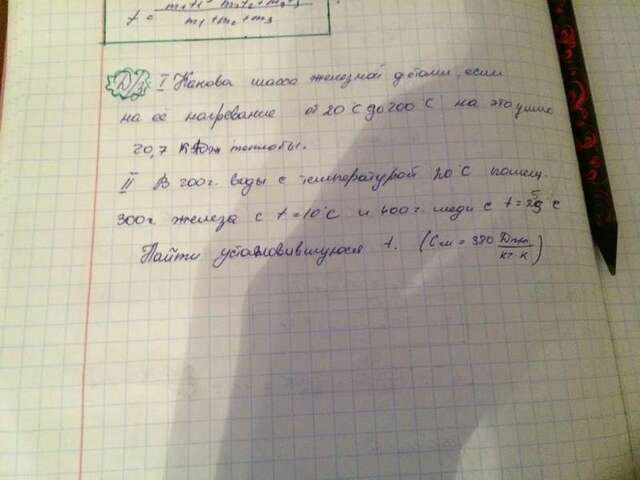 t = m₁t₁ + m₂t₂ + m₃t₃
m₁ + m₂ + m₃
Д/з I Какова масса железной детали, если
на ее нагревание от 20°С до 200°С на это ушло
20,7 кДж теплоты.
II В 200г. воды с температурой 20°С помещ.
300г. железа с t = 10°С и 400г. меди с t = 25°С
Найти установившуюся t. (См = 380 Дж
кг·К)